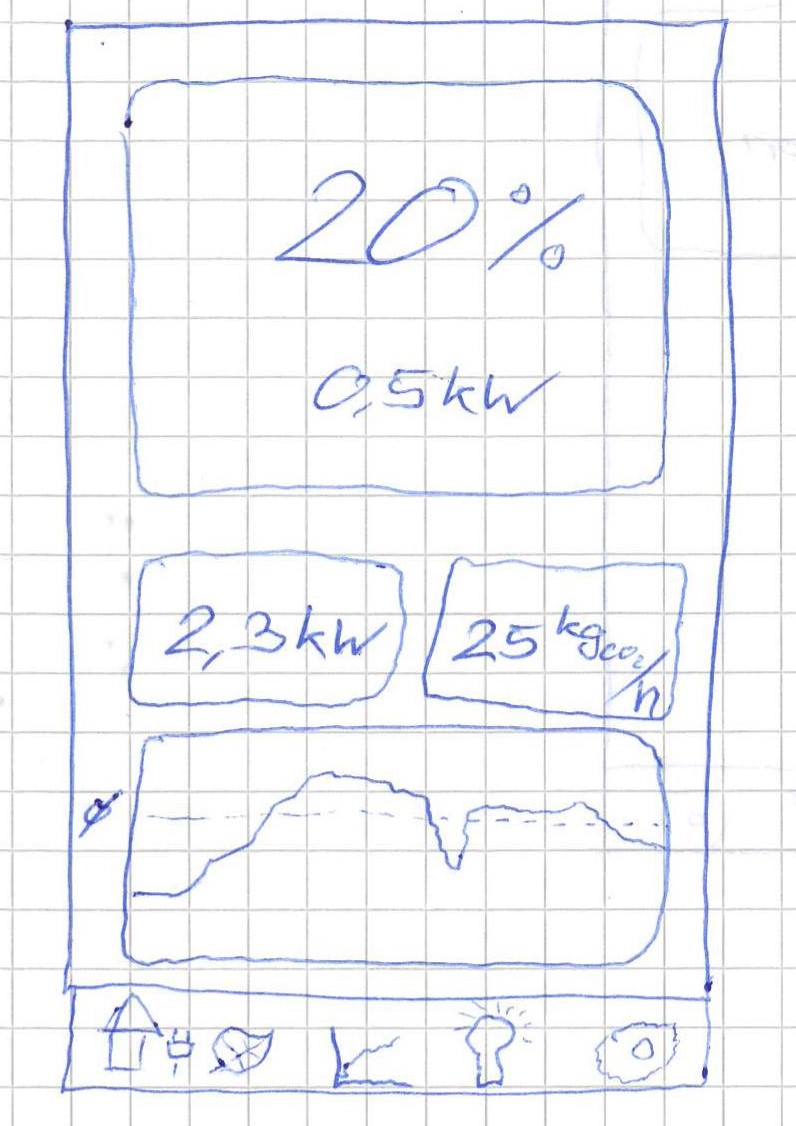 20%
0,5kW
2,3kW
25 kgco₂/h
ø